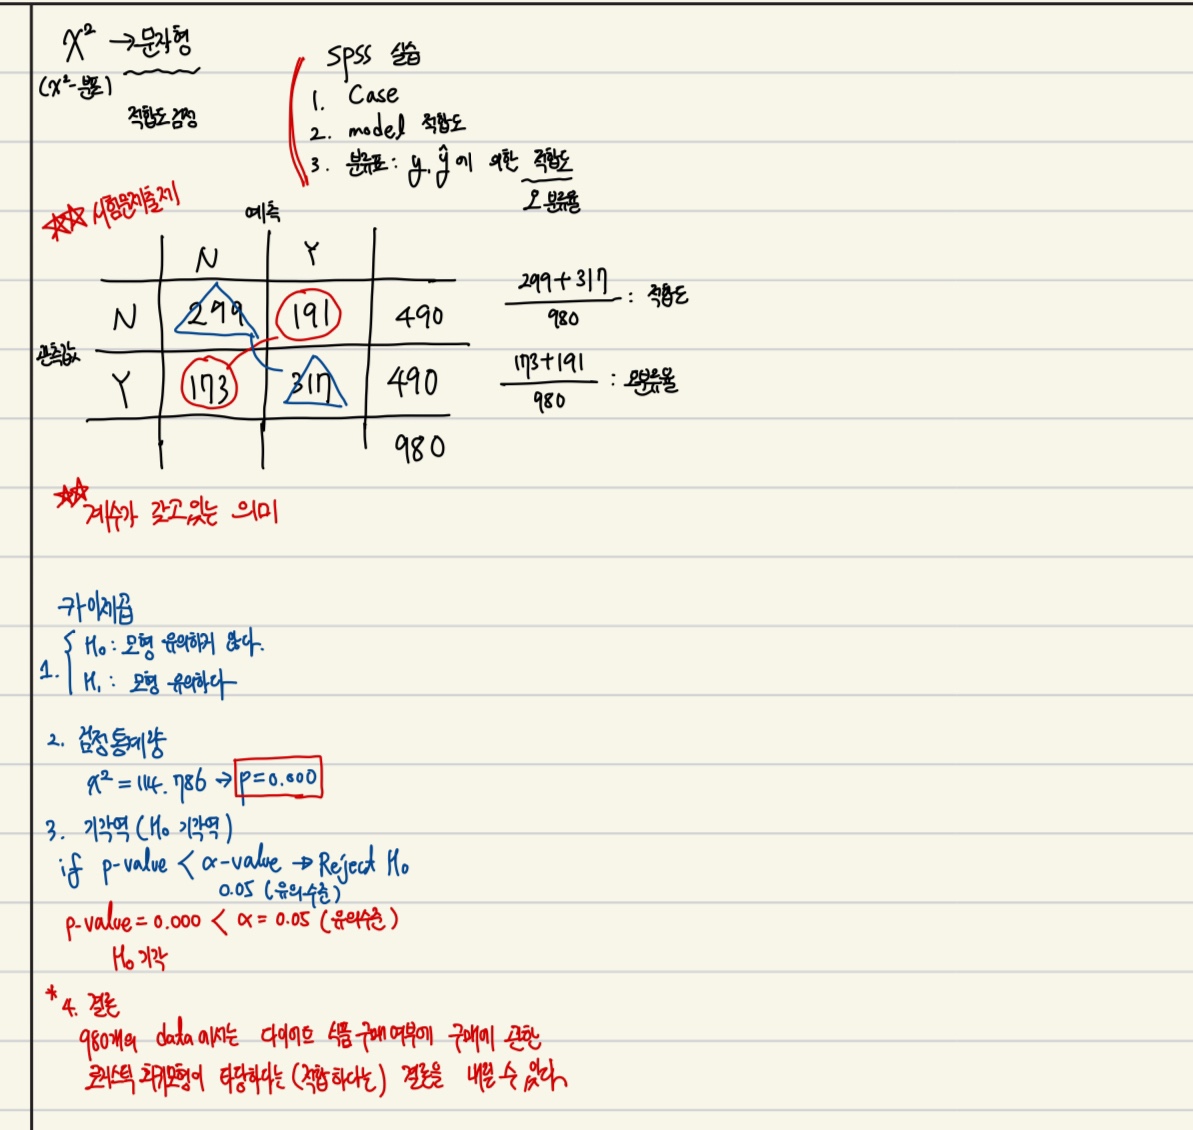 χ² → 문자형
(χ²-분포)
적합도 검정
SPSS 실습
1. Case
2. model 적합도
3. 분류표 : y, ŷ에 의한 적합도
오분류율
☆☆ 시험문제출제
예측
N Y
N 299 191 490
관측값
Y 173 317 490
980
299+317 / 980 : 적합도
173+191 / 980 : 오분류율
☆☆
계수가 갖고있는 의미
카이제곱
1. { H₀ : 모형 유의하지 않다.
H₁ : 모형 유의하다
2. 검정통계량
χ² = 114.786 → p=0.000
3. 기각역 (H₀ 기각역)
if p-value < α-value → Reject H₀
0.05 (유의수준)
p-value = 0.000 < α = 0.05 (유의수준)
H₀ 기각
* 4. 결론
980개의 data에서는 다이어트 식품 구매여부에 구매에 관한
로지스틱 회귀모형이 타당하다는 (적합하다는) 결론을 내릴 수 있다.